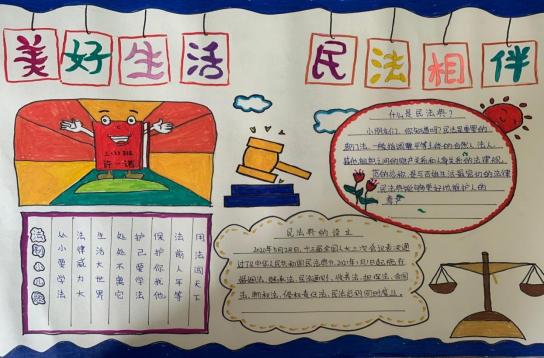 美好生活 民法相伴
什么是民法典?
小朋友们，你知道吗?民法是重要的
部门法，一般指调整平等主体的自然人、法人、
其他组织之间的财产关系和人身关系的法律规
范的总称，是与百姓生活最密切的法律
民法典能够更好地维护人的
民法典的设立
2020年5月28日，十三届全国人大三次会议表决通
过了《中华人民共和国民法典》，2021年1月1日起施行
婚姻法、继承法、民法通则、收养法、担保法、合同
法、物权法、侵权责任法、民法总则同时废止。
从小要学法
法律威力大
生活大世界
处处不离它
护己爱学法
保护你我他
法前人人平等
用法闯天下
许一诺